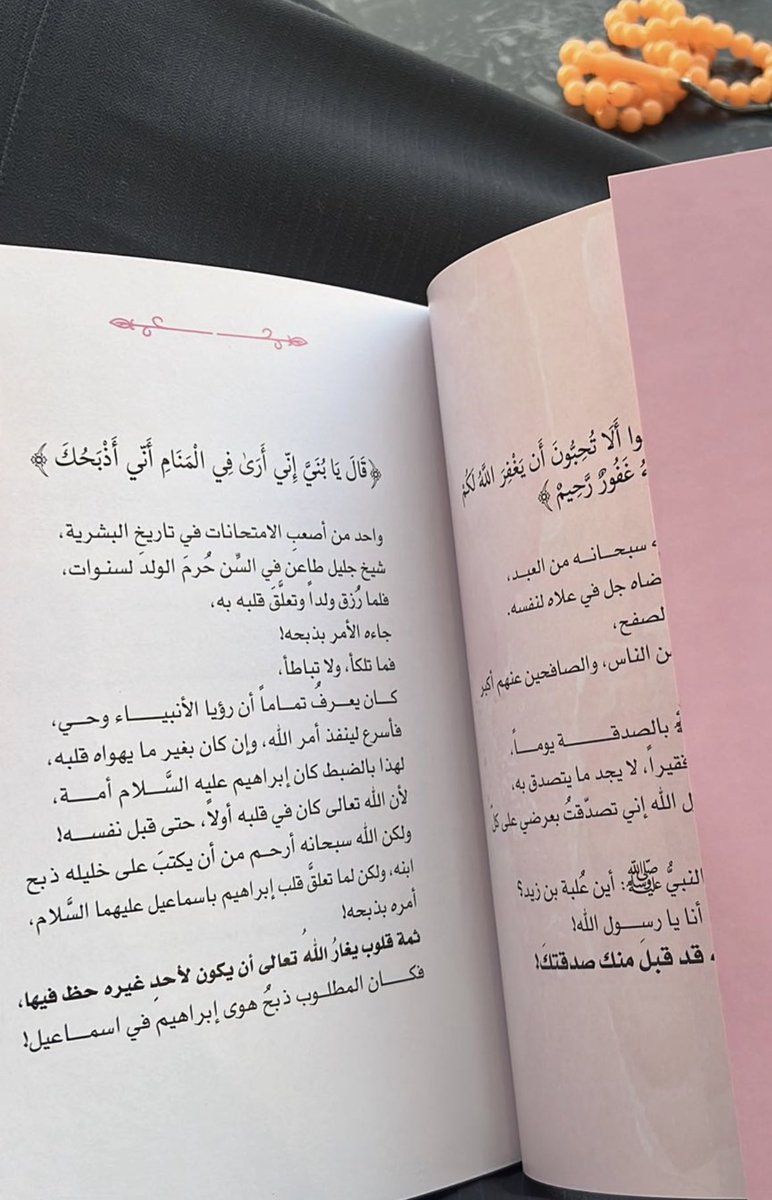 أَلَا تُحِبُّونَ أَن يَغْفِرَ اللَّهُ لَكُمْ
غَفُورٌ رَّحِيمٌ ﴾
سبحانه من العبد،
جل في علاه لنفسه.
لصفح،
الناس، والصافحين عنهم أكبر
بالصدقة يوماً،
فقيراً، لا يجد ما يتصدق به،
الله إني تصدّقتُ بعرضي على كل
النبيُّ ﷺ: أين عُلبة بن زيد؟
أنا يا رسول الله!
قد قبلَ منك صدقتكَ!
﴿قَالَ يَا بُنَيَّ إِنِّي أَرَىٰ فِي الْمَنَامِ أَنِّي أَذْبَحُكَ ﴾
واحد من أصعبِ الامتحانات في تاريخ البشرية،
شيخ جليل طاعن في السِّن حُرمَ الولدَ لسنوات،
فلما رُزق ولداً وتعلَّقَ قلبه به،
جاءه الأمر بذبحه!
فما تلكأ، ولا تباطأ،
كان يعرفُ تماماً أن رؤيا الأنبياء وحي،
فأسرع لينفذ أمر الله، وإن كان بغير ما يهواه قلبه،
لهذا بالضبط كان إبراهيم عليه السَّلام أمة،
لأن الله تعالى كان في قلبه أولاً، حتى قبل نفسه!
ولكن الله سبحانه أرحم من أن يكتبَ على خليله ذبح
ابنه، ولكن لما تعلقَّ قلب إبراهيم باسماعيل عليهما السَّلام،
أمره بذبحه!
ثمة قلوب يغارُ اللهُ تعالى أن يكون لأحدٍ غيره حظ فيها،
فكان المطلوب ذبحُ هوى إبراهيم في اسماعيل!